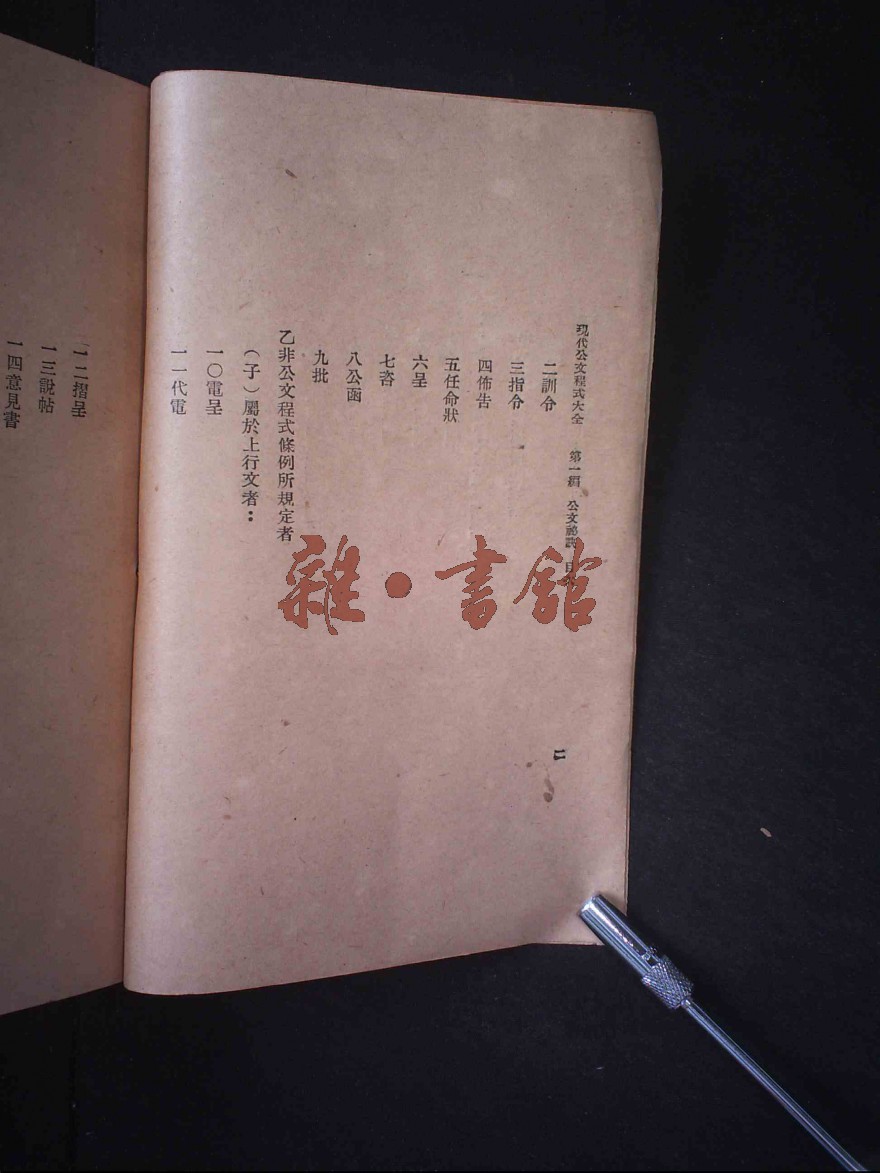 現代公文程式大全 第一編 公文總說 目次
二訓令
三指令
四佈告
五任命狀
六呈
七咨
八公函
九批
乙非公文程式條例所規定者
(子)屬於上行文者:
一〇電呈
一一代電
二
一二摺呈
一三說帖
一四意見書
雜·書館